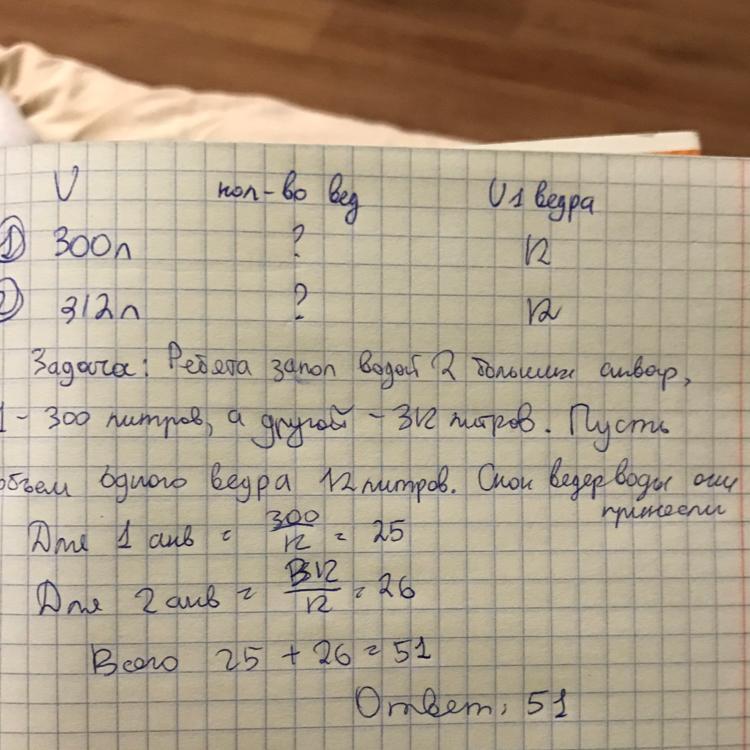 V кол-во вед V 1 ведра
① 300л ? 12
② 312л ? 12
Задача: Ребята запол водой 2 больших аквар,
1 - 300 литров, а другой - 312 литров. Пусть
объем одного ведра 12 литров. Скок ведер воды они
принесли
Для 1 акв = 300/12 = 25
Для 2 акв = 312/12 = 26
Всего 25 + 26 = 51
Ответ: 51